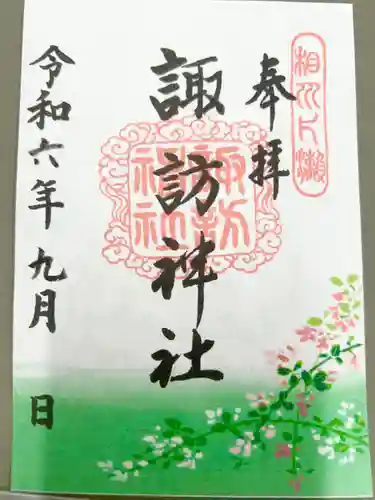 奉拝
諏訪神社
令和六年九月 日
相川片瀬
諏訪神社